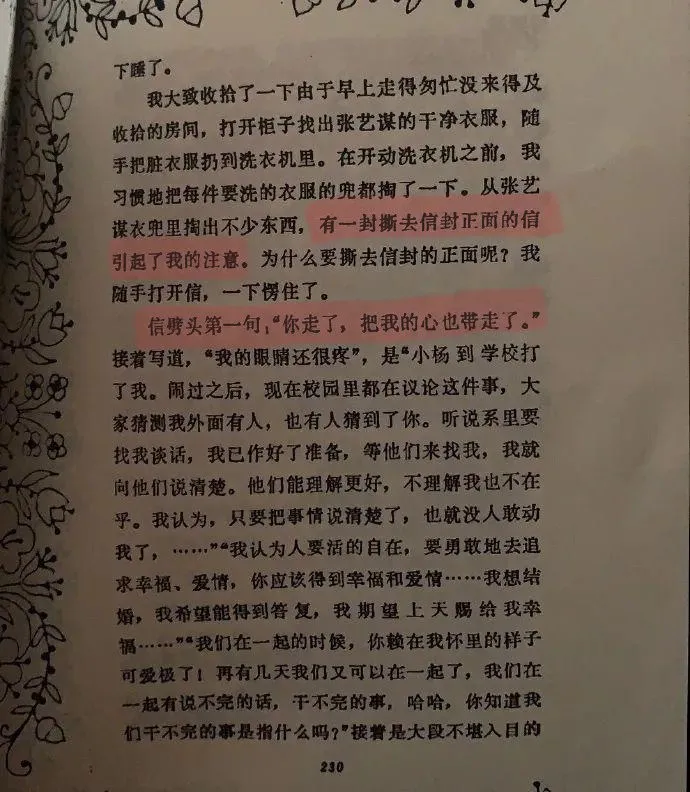 下睡了。
我大致收拾了一下由于早上走得匆忙没来得及
收拾的房间，打开柜子找出张艺谋的干净衣服，随
手把脏衣服扔到洗衣机里。在开动洗衣机之前，我
习惯地把每件要洗的衣服的兜都掏了一下。从张艺
谋衣兜里掏出不少东西，有一封撕去信封正面的信
引起了我的注意。为什么要撕去信封的正面呢？我
随手打开信，一下愣住了。
信劈头第一句：“你走了，把我的心也带走了。”
接着写道，“我的眼睛还很疼”，是“小杨到学校打
了我。闹过之后，现在校园里都在议论这件事，大
家猜测我外面有人，也有人猜到了你。听说系里要
找我谈话，我已作好了准备，等他们来找我，我就
向他们说清楚。他们能理解更好，不理解我也不在
乎。我认为，只要把事情说清楚了，也就没人敢动
我了，……”“我认为人要活的自在，要勇敢地去追
求幸福、爱情，你应该得到幸福和爱情……我想结
婚，我希望能得到答复，我期望上天赐给我幸
福……”“我们在一起的时候，你赖在我怀里的样子
可爱极了！再有几天我们又可以在一起了，我们在
一起有说不完的话，干不完的事，哈哈，你知道我
们干不完的事是指什么吗？”接着是大段不堪入目的
230